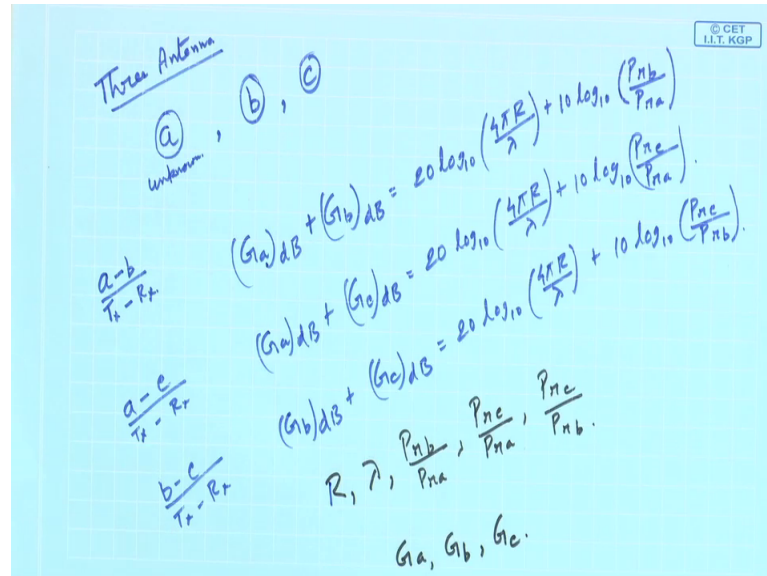 © CET
I.I.T. KGP
Three Antenna
a , b , c
unknown
a-b
Tx - Rx
(Ga)dB + (Gb)dB = 20 log10 (4πR/λ) + 10 log10 (Prb/Pra)
a-c
Tx - Rx
(Ga)dB + (Gc)dB = 20 log10 (4πR/λ) + 10 log10 (Prc/Pra).
b-c
Tx - Rx
(Gb)dB + (Gc)dB = 20 log10 (4πR/λ) + 10 log10 (Prc/Prb).
R, λ, Prb/Pra, Prc/Pra, Prc/Prb.
Ga, Gb, Gc.